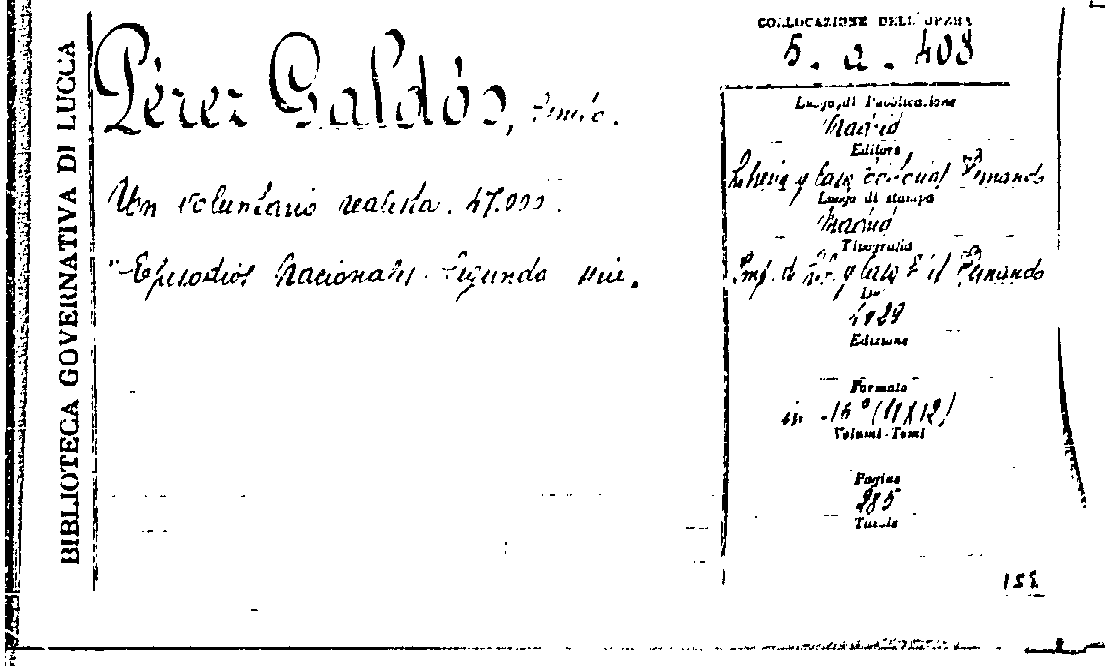 BIBLIOTECA GOVERNATIVA DI LUCCA
Pérez Galdós,
Un voluntario realista. 47.000.
"Episodios Nacionales. Segunda serie.
COLLOCAZIONE DELL'OPERA
5. a. 408
Luogo di Pubblicazione
Madrid
Editore
y Casa Editorial Hernando
Luogo di stampa
Madrid
Tipografia
Imp. de y Casa Edit Hernando
Edizione
Formato
in 16°
Volumi-Tomi
Pagine
285
Tavole